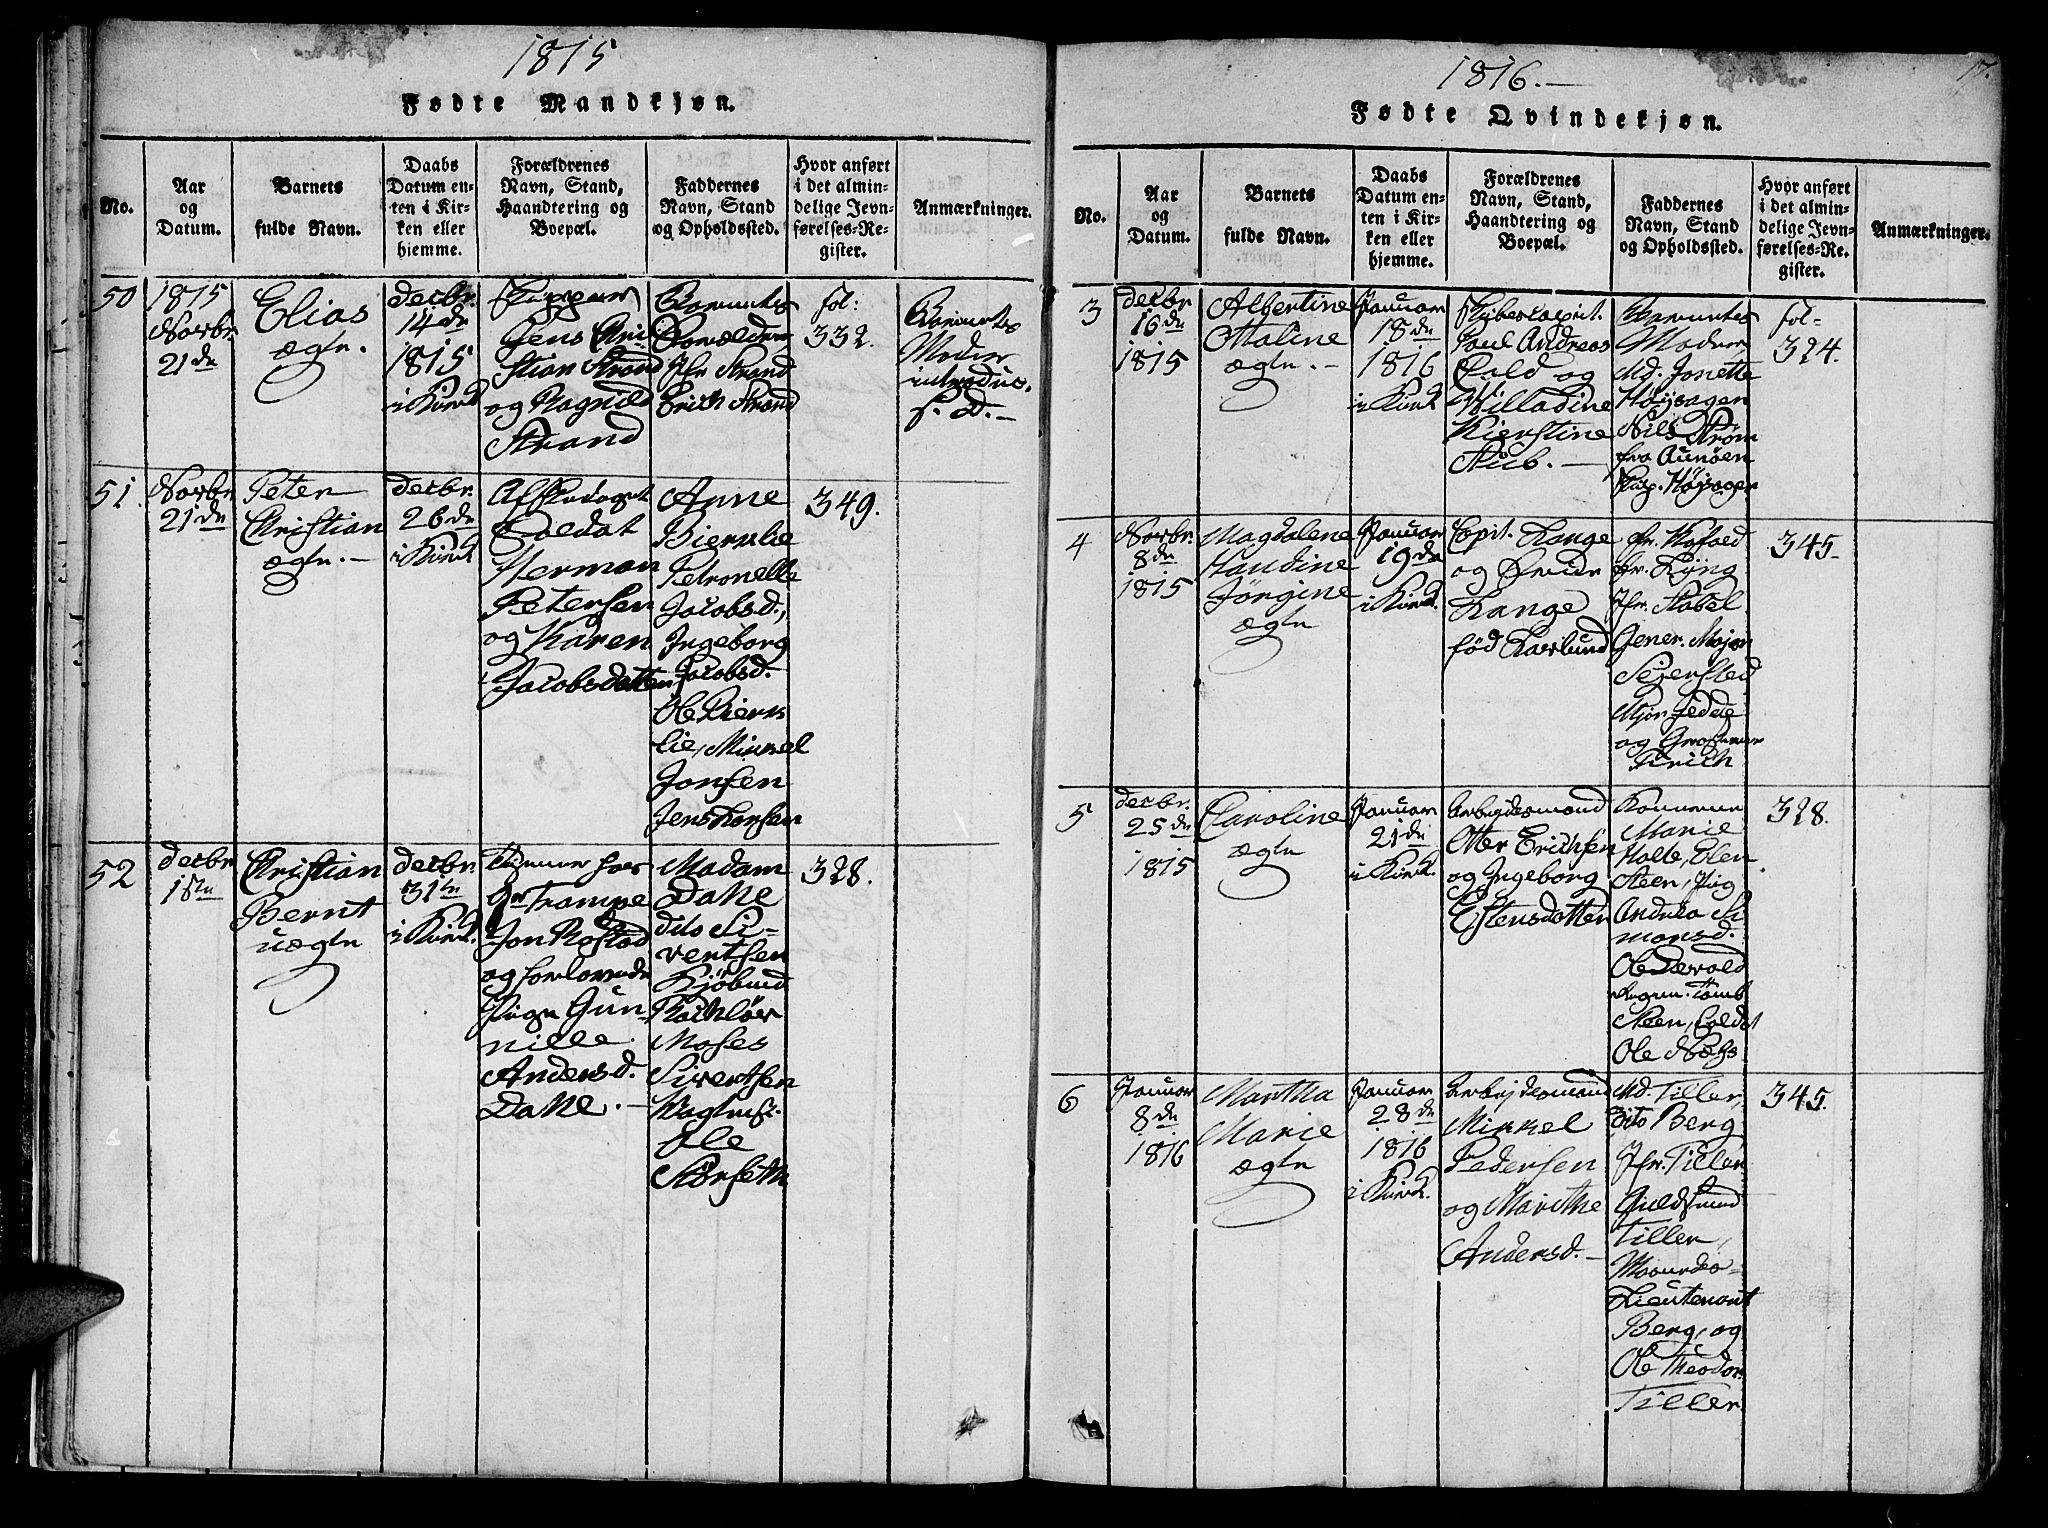 1815
Fødte Mandkjøn.
No.
Aar
og
Datum.
Barnets
fulde Navn.
Daabs
Datum en-
ten i Kir-
ken eller
hjemme.
Forældrenes
Navn, Stand,
Haandtering og
Boepæl.
Faddernes
Navn, Stand
og Opholdssted.
Hvor anført
i det almin-
delige Jevn-
førelses-Re-
gister.
Anmærkninger.
50
1815
Novbr.
21de
Elias
ægte.
Decbr.
14de
1815
i Kirck
Jens Chri
stian Strand
og Ragnild
Strand
Barnets
Forældre
Jfr Strand
Erich Strand
fol:
332.
Barnets
Moder
introduc.
s. D.
51.
Novbr.
21de
Peter
Christian
ægte.
Decbr.
26de
i Kirck
Afskediget
Soldat
Herman
Petersen
og Karen
Jacobsdatter
Anne
Biernlie
Petronelle
Jacobsd.,
Ingeborg
Jacobsd.
Ole Bierns
lie, Mickel
Jonsen
Jens Larsen
349.
52
Decbr
1ste
Christian
Bernt
uægte
Decbr.
31te
i Kirck.
Tiener hos
Gr Trampe
Jon Rostad
og forlovede
Pige Gun-
nille
Andersd.
Dahle.
Madam
Dahle
dito Si-
vertsen
Kjøbmd
Moses
Sivertsen
Ole
Størseth
328.
1816.
17.
Fødte Qvindekjøn.
No.
Aar
og
Datum.
Barnets
fulde Navn.
Daabs
Datum en-
ten i Kir-
ken eller
hjemme.
Forældrenes
Navn, Stand,
Haandtering og
Boepæl.
Faddernes
Navn, Stand
og Opholdssted.
Hvor anført
i det almin-
delige Jevn-
førelses-Re-
gister.
Anmærkninger.
3
Decbr
16de
1815
Albertine
Ottaline
ægte.
Januar
18de
1816
i Kirck
Skibscapit.
Poul Andreas
Told og
Willadine
Kierstine
Stub.
Barnets
Moder
Md. Jonette
Høysagen
Nils Strøm
fra Aunøen
Skip. Høysagen
fol-
324.
4
Novbr.
8de
1815
Magdalene
Handine
Jørgine
ægte
Januar
19de
i Kirck.
Capit. Lange
og
Lange
fød
fr. Hofoed
fr. Lÿng
Jfr. Stabel
Gener. Major
Seiersted
Major
og Grosserer
345.
5
Decbr.
25de
1815
Caroline
ægte
Januar
21de
i Kirck.
Arbejdsmand
Otter Erichsen
og Ingeborg
Estensdatter
Konerne
Marie
Holte, Elen
Steen, Pig
Andrea Si
monsd.
Ole
Steen, Soldat
Ole Næss
328.
6
Januar
8de
1816
Martha
Marie
ægte
Januar
28de
1816
i Kirck.
Arbejdsmand
Mickel
Pedersen
og Marithe
Andersd.
Md. Tiller,
dito Berg
Jfr. Tiller
Guldsmed
Tiller,
Lieutenant
Berg, og
Ole Theodor
Tiller
345.